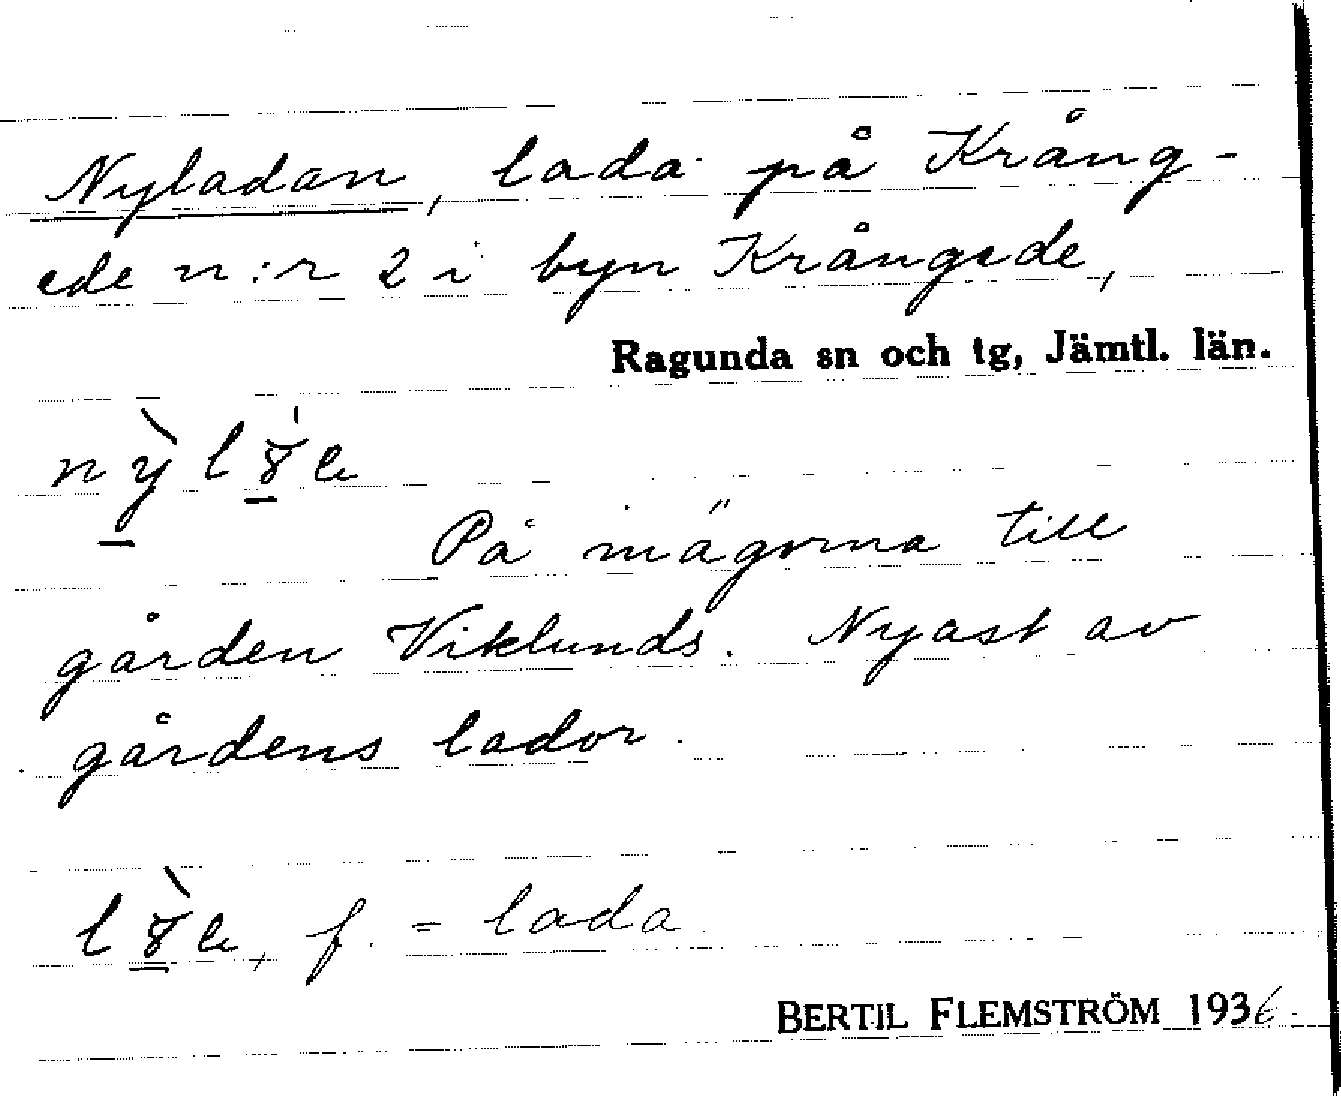 Nyladan, lada på Krång-
ede n:r 2 i byn Krångede,
Ragunda sn och tg, Jämtl. län.
På inägorna till
gården Viklunds. Nyast av
gårdens lador.
f. = lada
BERTIL FLEMSTRÖM 1936